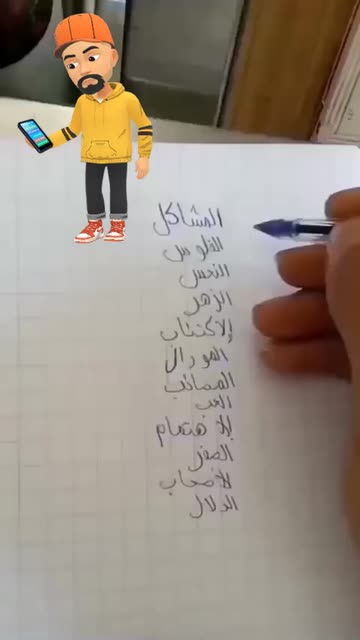 المشاكل
الفلوس
النحس
الزهر
الاكتئاب
المورال
المصائب
الحب
الاهتمام
الصقر
الاصحاب
الدلال